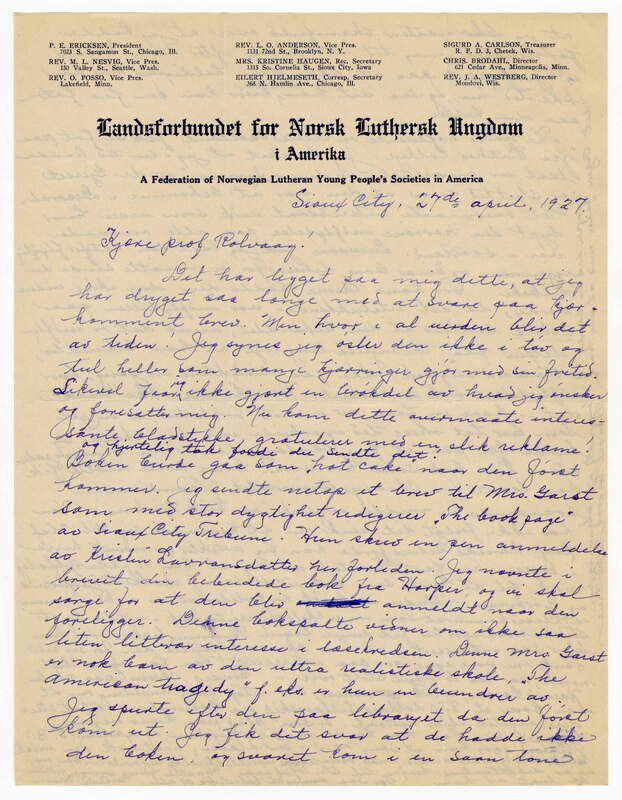 P. E. ERICKSEN, President
7023 S. Sangamon St., Chicago, Ill.
REV. M. L. NESVIG, Vice Pres.
150 Valley St., Seattle, Wash.
REV. O. FOSSO, Vice Pres.
Lakefield, Minn.
REV. L. O. ANDERSON, Vice Pres.
1131 72nd St., Brooklyn, N. Y.
MRS. KRISTINE HAUGEN, Rec. Secretary
1315 So. Cornelia St., Sioux City, Iowa
EILERT HJELMESETH, Corresp. Secretary
368 N. Hamlin Ave., Chicago, Ill.
SIGURD A. CARLSON, Treasurer
R. F. D. 3, Chetek, Wis.
CHRIS. BRODAHL, Director
621 Cedar Ave., Minneapolis, Minn.
REV. J. A. WESTBERG, Director
Mondovi, Wis.
Landsforbundet for Norsk Luthersk Ungdom
i Amerika
A Federation of Norwegian Lutheran Young People's Societies in America
Sioux City, 27de april, 1927.
Kjære prof Rölvaag!
Det har ligget paa mig dette, at jeg
har dryget saa længe med at svare paa kjær-
komment brev. Men, hvor i al verden blir det
av tiden. Jeg synes jeg osler den ikke i tøv og
tul heller som mange kjærringer gjør med sin fretid.
Likevel faar ikke gjort en brøkdel av hvad jeg ønsker
og foresætter mig. Nu kom dette overmaate interes-
sante bladstykke gratulerer med en slik reklame!
og hjertelig tak fordi du sendte det.
Boken burde gaa som "hot cake" naar den først
kommer. Jeg sendte netop et brev til Mrs. Garst
som med stor dygtighet redigerer "The book page"
av Sioux City Tribune. Hun skrev en pen anmeldelse
av Kristin Lavransdatter her forleden. Jeg nævnte i
brevet din bebudede bok fra Harper, og vi skal
sørge for at den blir anmeldt naar den
foreligger. Denne bokspalte vidner om ikke saa
liten litterær interesse i læsekredsen. Denne Mrs. Garst
er nok barn av den ultra realistiske skole, "The
american tragedy" f. eks. er hun en beundrer av.
Jeg spurte efter den paa libraryet da den først
kom ut. Jeg fik det svar at de hadde ikke
den boken, og svaret kom i en saan tone